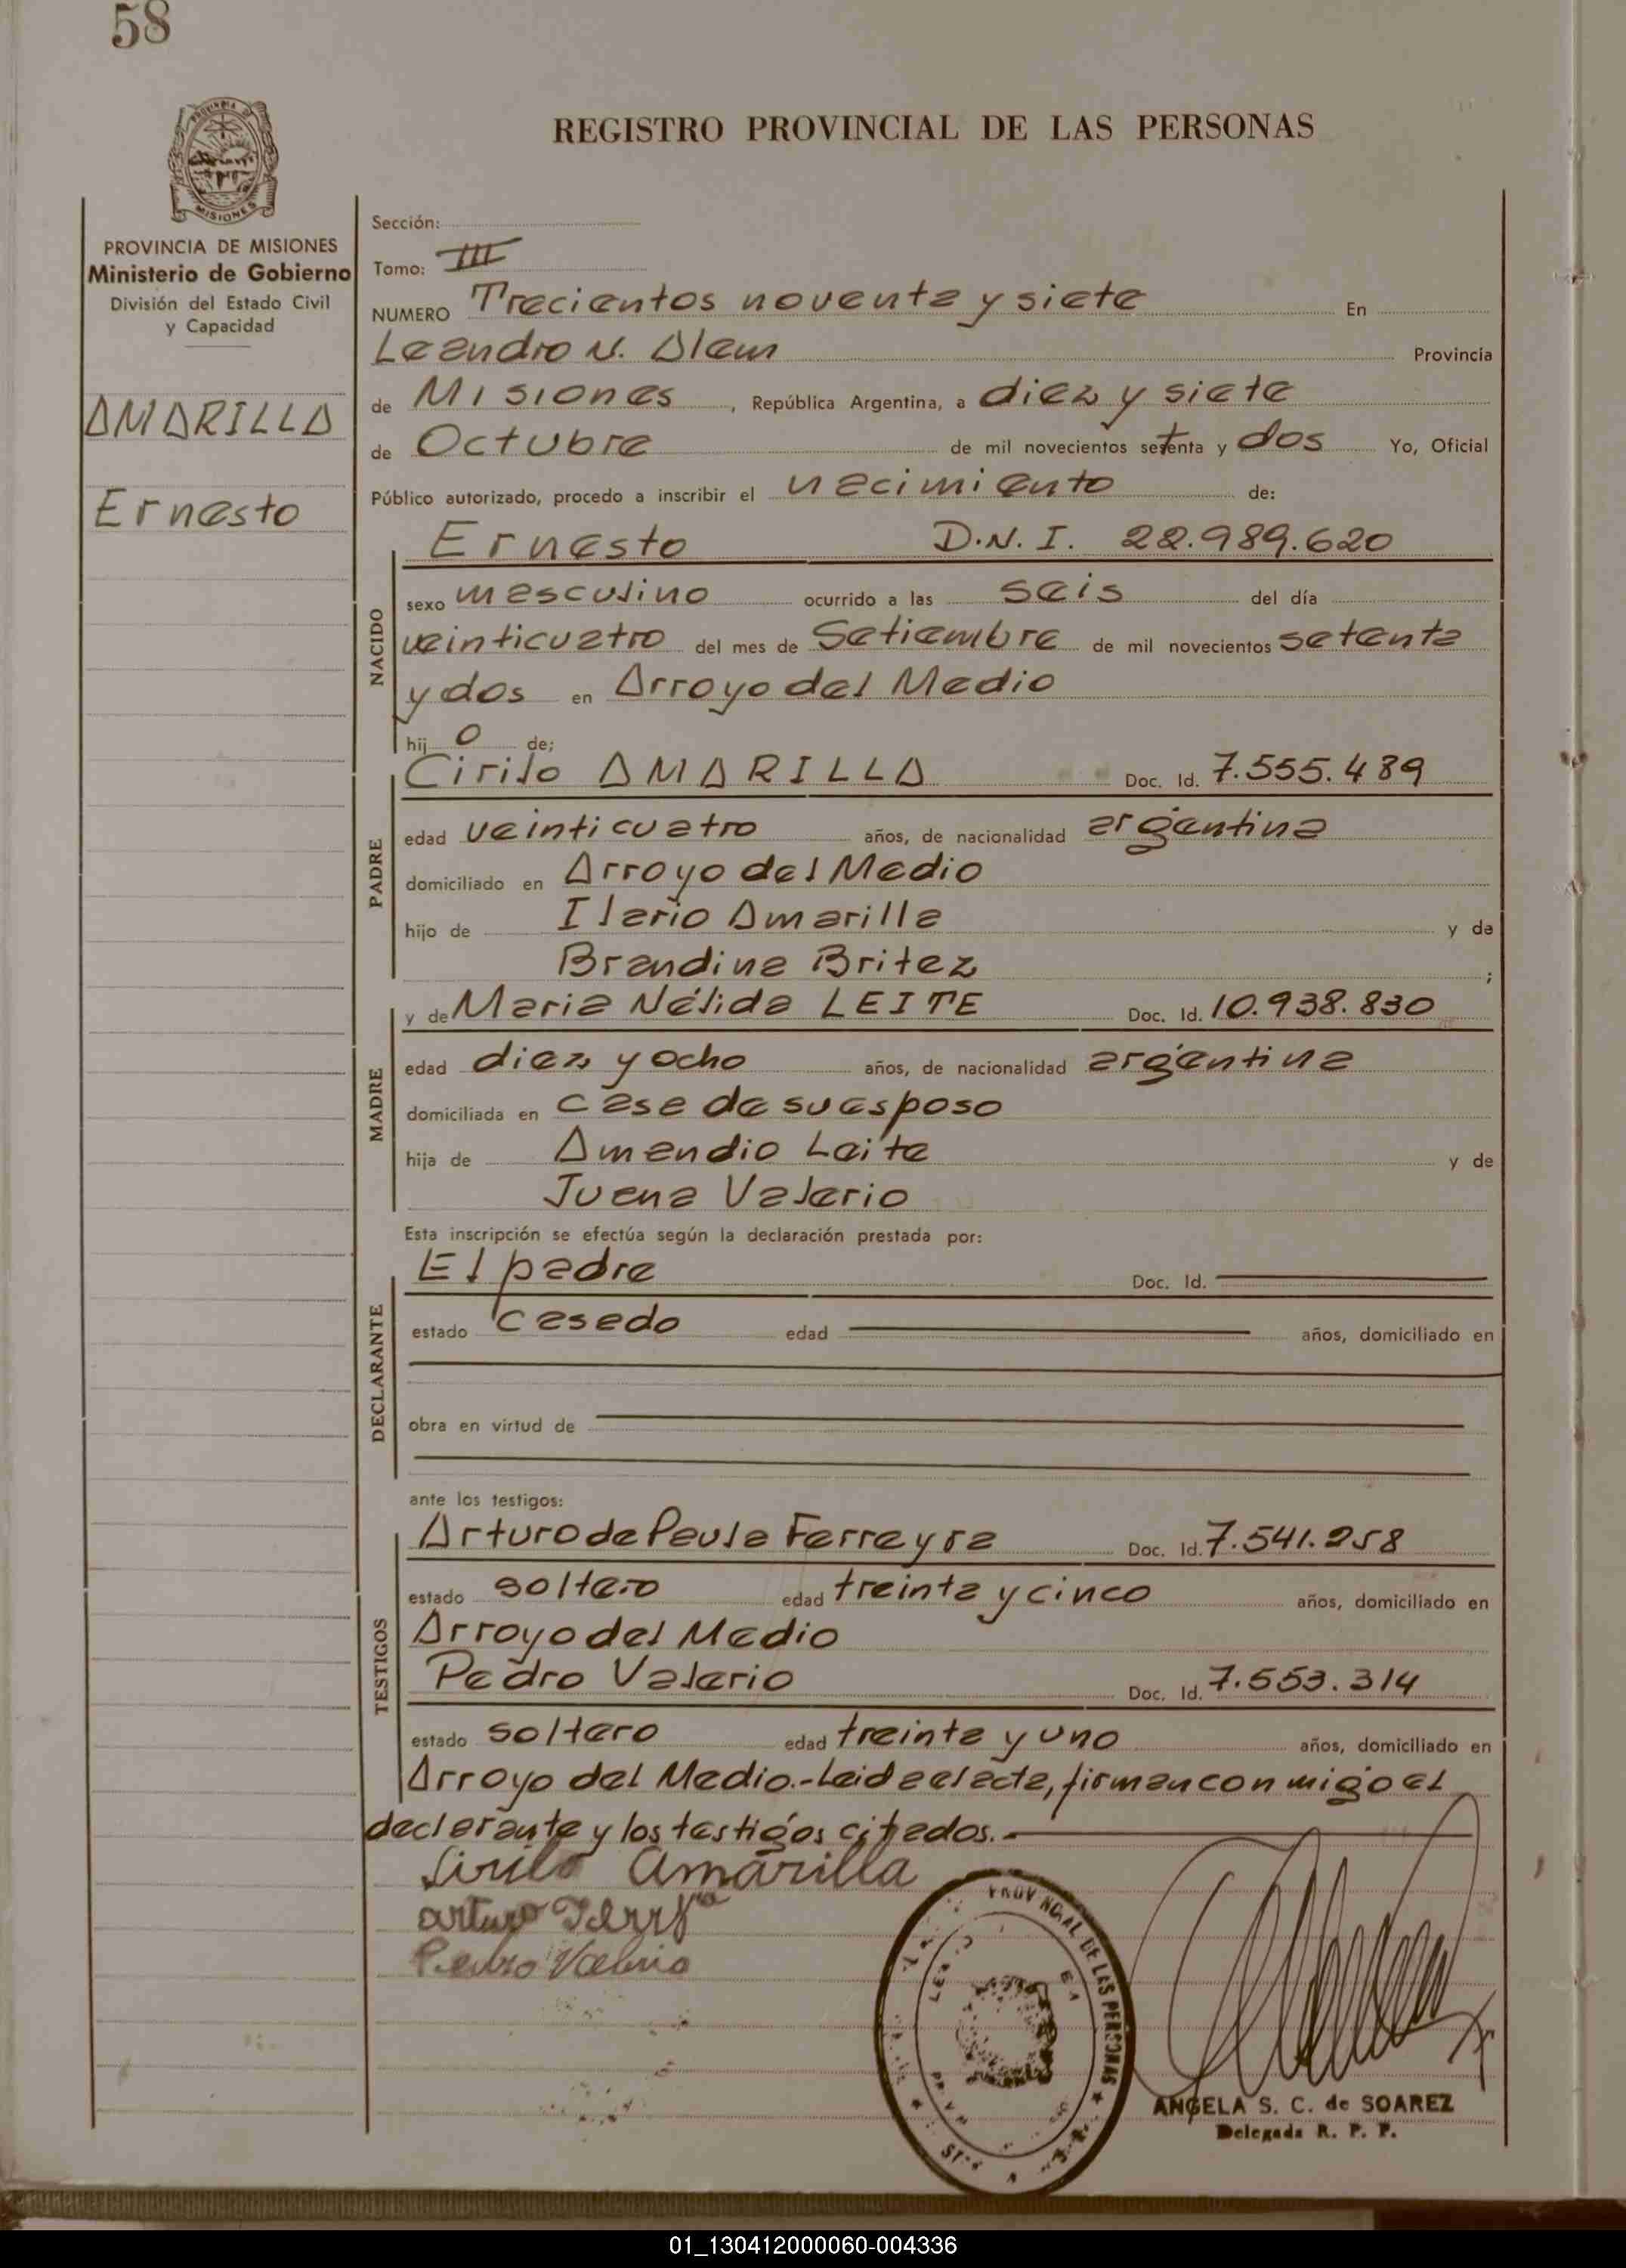 58
PROVINCIA DE MISIONES
Ministerio de Gobierno
División del Estado Civil
y Capacidad
AMARILLA
Ernesto
REGISTRO PROVINCIAL DE LAS PERSONAS
Sección:
Tomo: III
NUMERO Trecientos noventa y siete En
Leandro N. Alem Provincia
de Misiones, República Argentina, a diez y siete
de Octubre de mil novecientos setenta y dos Yo, Oficial
Público autorizado, procedo a inscribir el nacimiento de:
NACIDO
Ernesto D.N.I. 22.989.620
sexo masculino ocurrido a las seis del día
veinticuatro del mes de Setiembre de mil novecientos setenta
y dos en Arroyo del Medio
hij o de;
PADRE
Cirilo AMARILLA Doc. Id. 7.555.489
edad veinticuatro años, de nacionalidad argentina
domiciliado en Arroyo del Medio
hijo de Ilario Amarilla y de
Brandina Britez ;
MADRE
y de Maria Nélida LEITE Doc. Id. 10.938.830
edad diez y ocho años, de nacionalidad argentina
domiciliada en casa de su esposo
hija de Amandio Leite y de
Juana Valerio
Esta inscripción se efectúa según la declaración prestada por:
DECLARANTE
El padre Doc. Id.
estado casado edad años, domiciliado en
obra en virtud de
ante los testigos:
TESTIGOS
Arturo de Paula Ferreyra Doc. Id. 7.541.258
estado soltero edad treinta y cinco años, domiciliado en
Arroyo del Medio
Pedro Valerio Doc. Id. 7.553.314
estado soltero edad treinta y uno años, domiciliado en
Arroyo del Medio.- Leida el acta, firman conmigo el
declarante y los testigos citados.-
Sirilo Amarilla
arturo
Pedro Valerio
PROVINCIAL DE LAS PERSONAS
ANGELA S. C. de SOAREZ
Delegada R. P. P.
01_130412000060-004336